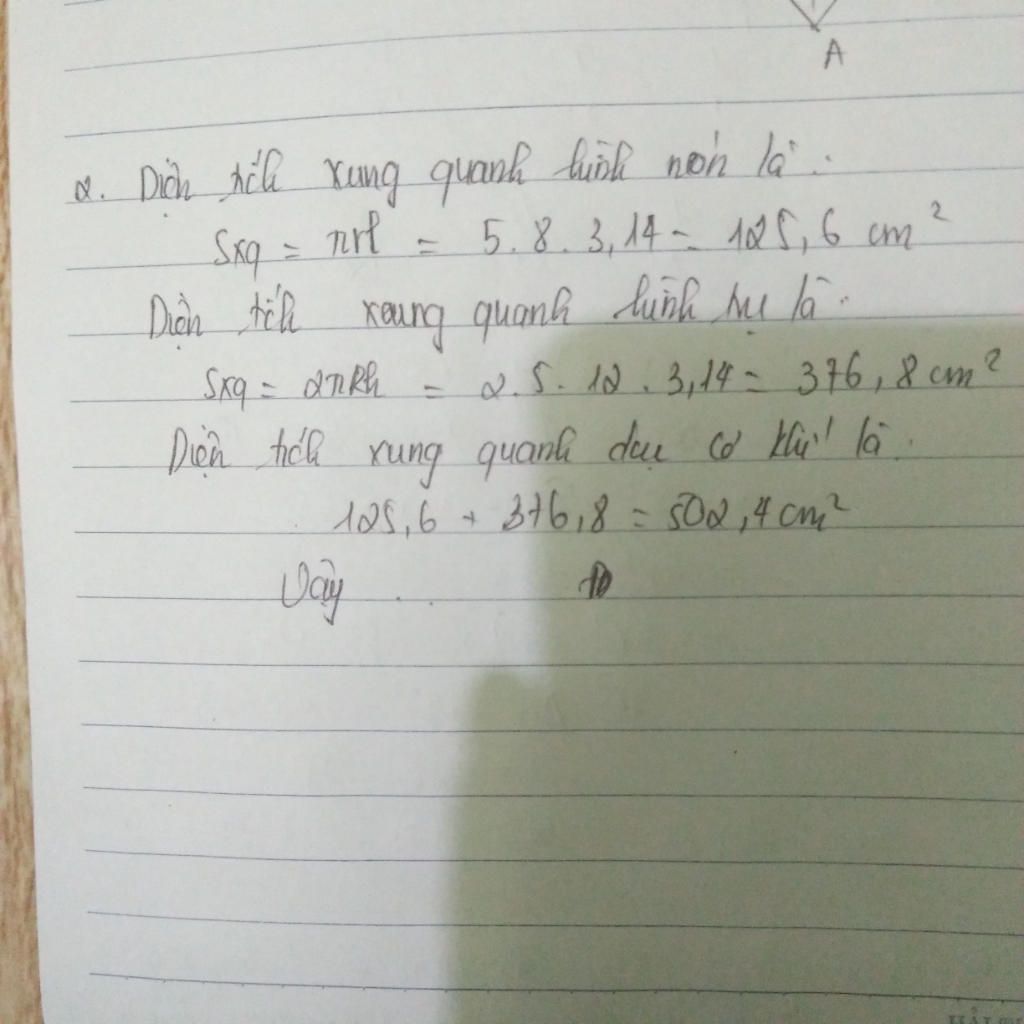 A
2. Diện tích xung quanh hình nón là:
Sxq = πrl = 5.8.3,14 = 125,6 cm²
Diện tích xung quanh hình trụ là:
Sxq = 2πRh = 2.5.12.3,14 = 376,8 cm²
Diện tích xung quanh dụng cơ khí là:
125,6 + 376,8 = 502,4 cm²
Vậy ...